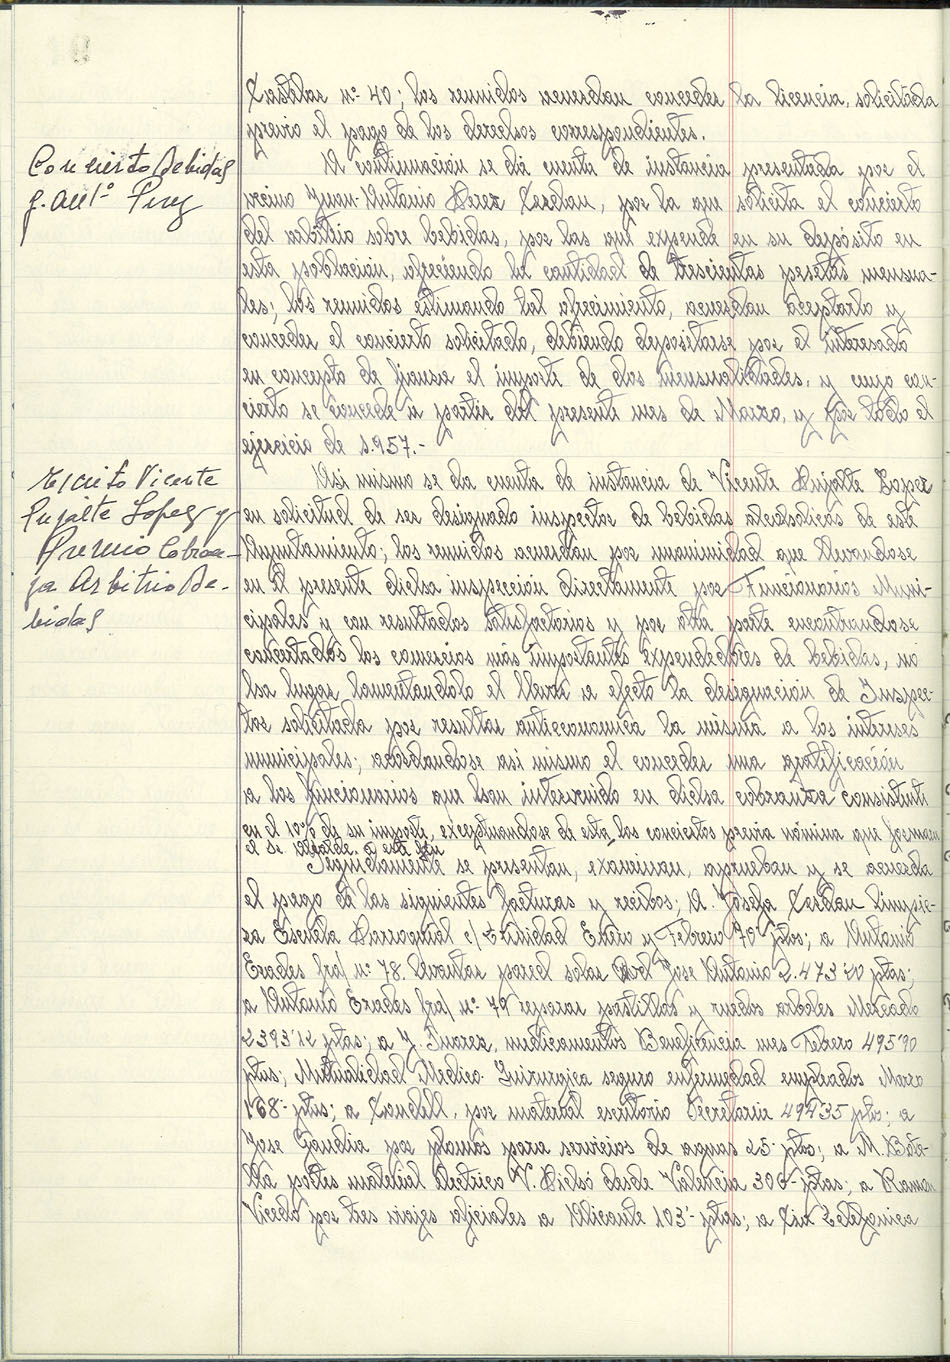 Castelar nº 40; los reunidos acuerdan conceder la licencia, solicitada
previo el pago de los derechos correspondientes.
Concierto Bebidas
J. Antº Perez
A continuación se dá cuenta de instancia presentada por el
vecino Juan-Antonio Perez Cerdan, por la que solicita el concierto
del arbitrio sobre bebidas, por las que expende en su depósito en
esta población, ofreciendo la cantidad de trescientas pesetas mensua-
les; los reunidos estimando tal ofrecimiento, acuerdan aceptarlo y
conceder el concierto solicitado, debiendo depositarse por el interesado
en concepto de fianza el importe de dos mensualidades, y cuyo con-
cierto se concede a partir del presente mes de Marzo, y por todo el
ejercicio de 1.957.-
Escrito Vicente
Pujalte Lopez y
Premio Cobran-
za Arbitrio Be-
bidas
Asi mismo se da cuenta de instancia de Vicente Pujalte Lopez
en solicitud de ser designado inspector de bebidas alcoholicas de este
Ayuntamiento; los reunidos acuerdan por unanimidad que llevandose
en el presente dicha inspección directamente por Funcionarios Muni-
cipales y con resultados satisfactorios y por otra parte encontrandose
concertados los comercios más importantes expendedores de bebidas, no
ha lugar lamentandolo el llevar a efecto la designación de Inspec-
tor solicitada por resultar antieconomica la misma a los intereses
municipales; acordandose asi mismo el conceder una gratificación
a los funcionarios que han intervenido en dicha cobranza consistente
en el 10% de su importe, exceptuandose de esta los conciertos previa nómina que formará
el Sr Alcalde a este fin
Seguidamente se presentan, examinan, aprueban y se acuerda
el pago de las siguientes facturas y recibos; A. Josefa Cerdan limpie-
za Escuela Parroquial c/ Trinidad Enero y Febrero 70 ptas; a Antonio
Erades fra/ nº 78. levantar pared solar Avd Jose Antonio 2.473'20 ptas;
a Antonio Erades fra/ nº 79 reparar portillos y ruedos arboles Mercado
2393'12 ptas; a J. Juarez, medicamentos Beneficencia mes Febrero 495'90
ptas; Mutualidad Medico-Quirurgica seguro enfermedad empleados Marzo
168- ptas; a Candell, por material escritorio Secretaria 494'35 ptas; a
Jose Gandia por plomos para servicios de aguas 25- ptas; a M. Bote-
lla portes material electrico V. Pielsó desde Valencia 300- ptas; a Ramon
Vicedo por tres viajes oficiales a Alicante 103'- ptas; a Cia Telefonica